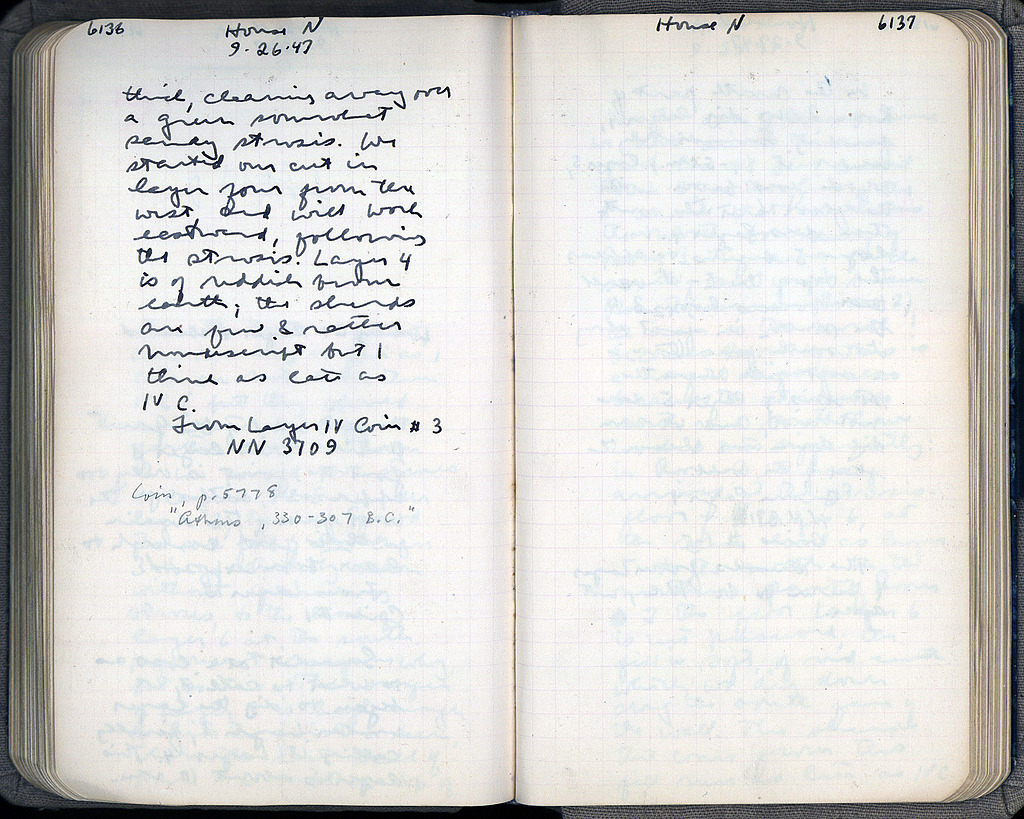 6136
House N
9.26.47
third, cleaning away over
a green somewhat
sandy strosis. We
started our cut in
layer four from the
west, and will work
eastward, following
the strosis. Layer 4
is of reddish brown
earth; the sherds
are few & rather
nondescript but I
think as late as
IV C.
From Layer IV Coin #3
NN 3709
Coin, p. 5778
"Athens, 330-307 B.C."
House N
6137